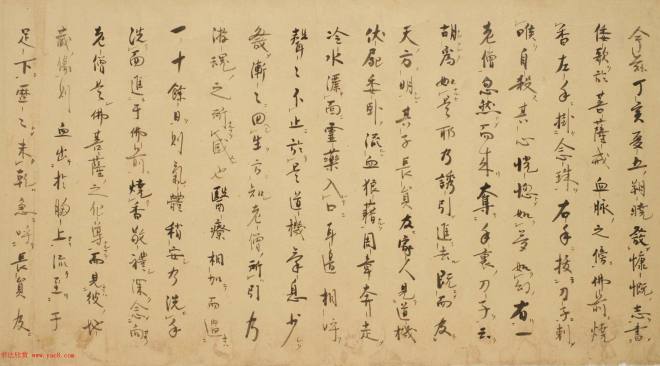 今茲丁亥夏五朔曉發慷慨志書
倭歌於菩薩戒血脈之傍佛前燒
香左手掛念珠右手按刀子刺
喉自殺其心恍惚如夢如幻有一
老僧忽然而來奪手裏刀子云
胡為如是耶乃誘引進去既而夜
天方明其子長員及家人見道機
伏屍委臥流血狼藉周章奔走
冷水灑面靈藥入口耳邊相呼
聲々不止於是道機氣息少
發漸々回生方知老僧所引乃
遊魂之所感也醫療相加而過
一十餘日則氣體稍安乃洗手
洗面進于佛前燒香敬禮深念向
老僧是佛菩薩之化導而見彼地
藏像則血出於胸上流至于
足下歷々未乾急呼長員及
书法欣赏 www.yac8.com